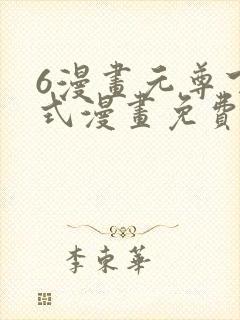 6漫畫元尊
式漫畫免費
李東華